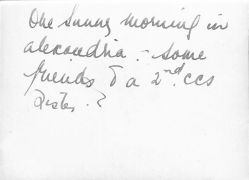 One Sunny morning in
alexandria :- Some
friends & a 2nd ccs
Sister. ?